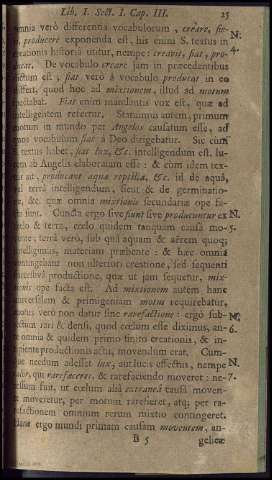 Lib. I. Sect. I. Cap. III. 25
omnia verò differentia vocabulorum, creare, fie-
ri, producere exponenda est, his enim S. textus in
creationis historia utitur, nempe: creavit, fiat, pro-
ducat. De vocabulo creare jam in præcedentibus
dictum est, fiat verò à vocabulo producat in eo
differt, quod hoc ad mixtionem, illud ad motum
spectabat. Fiat enim mandantis vox est, quæ ad
intelligentem refertur. Statuimus autem, primum
motum in mundo per Angelos causatum esse, ad
quos vocabulum fiat à Deo dirigebatur. Sic cum
textus habet, fiat lux, &c. intelligendum est, lu-
cem ab Angelis elaboratam esse: & cum idem tex-
tus ait, producant aquæ reptilia, &c. id de aquâ,
vel terrâ intelligendum, sicut & de germinatio-
ne, &c. quæ omnia mixtionis secundariæ ope fa-
cta sunt. Cuncta ergo sive fiunt sive producuntur ex
cælo & terra, cœlo quidem tanquam causâ mo-
vente; terrâ verò, sub quâ aquam & aërem quoq;
intelligimus, materiam præbente: & hæc omnia
contingebant non ulteriori creatione, sed sequenti
successivâ productione, quæ ut jam sequetur, mix-
tionis ope facta est. Ad mixtionem autem hanc
universalem & primigeniam motus requirebatur,
motus verò non datur sine rarefactione: ergo sub-
jectum rari & densi, quod cœlum esse diximus, an-
te omnia & quidem primo finito creationis, & in-
cipiente productionis actu, movendum erat. Cum-
que needum adesset lux, aut lucis effectus, nempe
calor, qui rarefaceret, & rarefaciendo moveret: ne-
cessum fuit, ut cœlum aliâ externâ causâ moven-
te moveretur, per motum rarefieret, atq; per ra-
refactionem omnium rerum mixtio contingeret.
Hanc ergo mundi primam causam moventem, an-
B 5 gelicæ
N.
4.
N.
5.
N.
6.
N.
7.